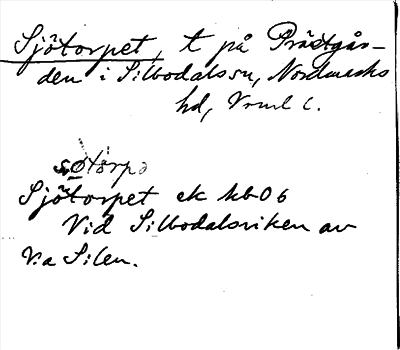 Sjötorpet, t på Prästgår-
den i Silbodals sn, Nordmarks
hd, Vrml l.
sø̀tòrpə
Sjötorpet ek hb06
Vid Silbodalsviken av
V:a Silen.